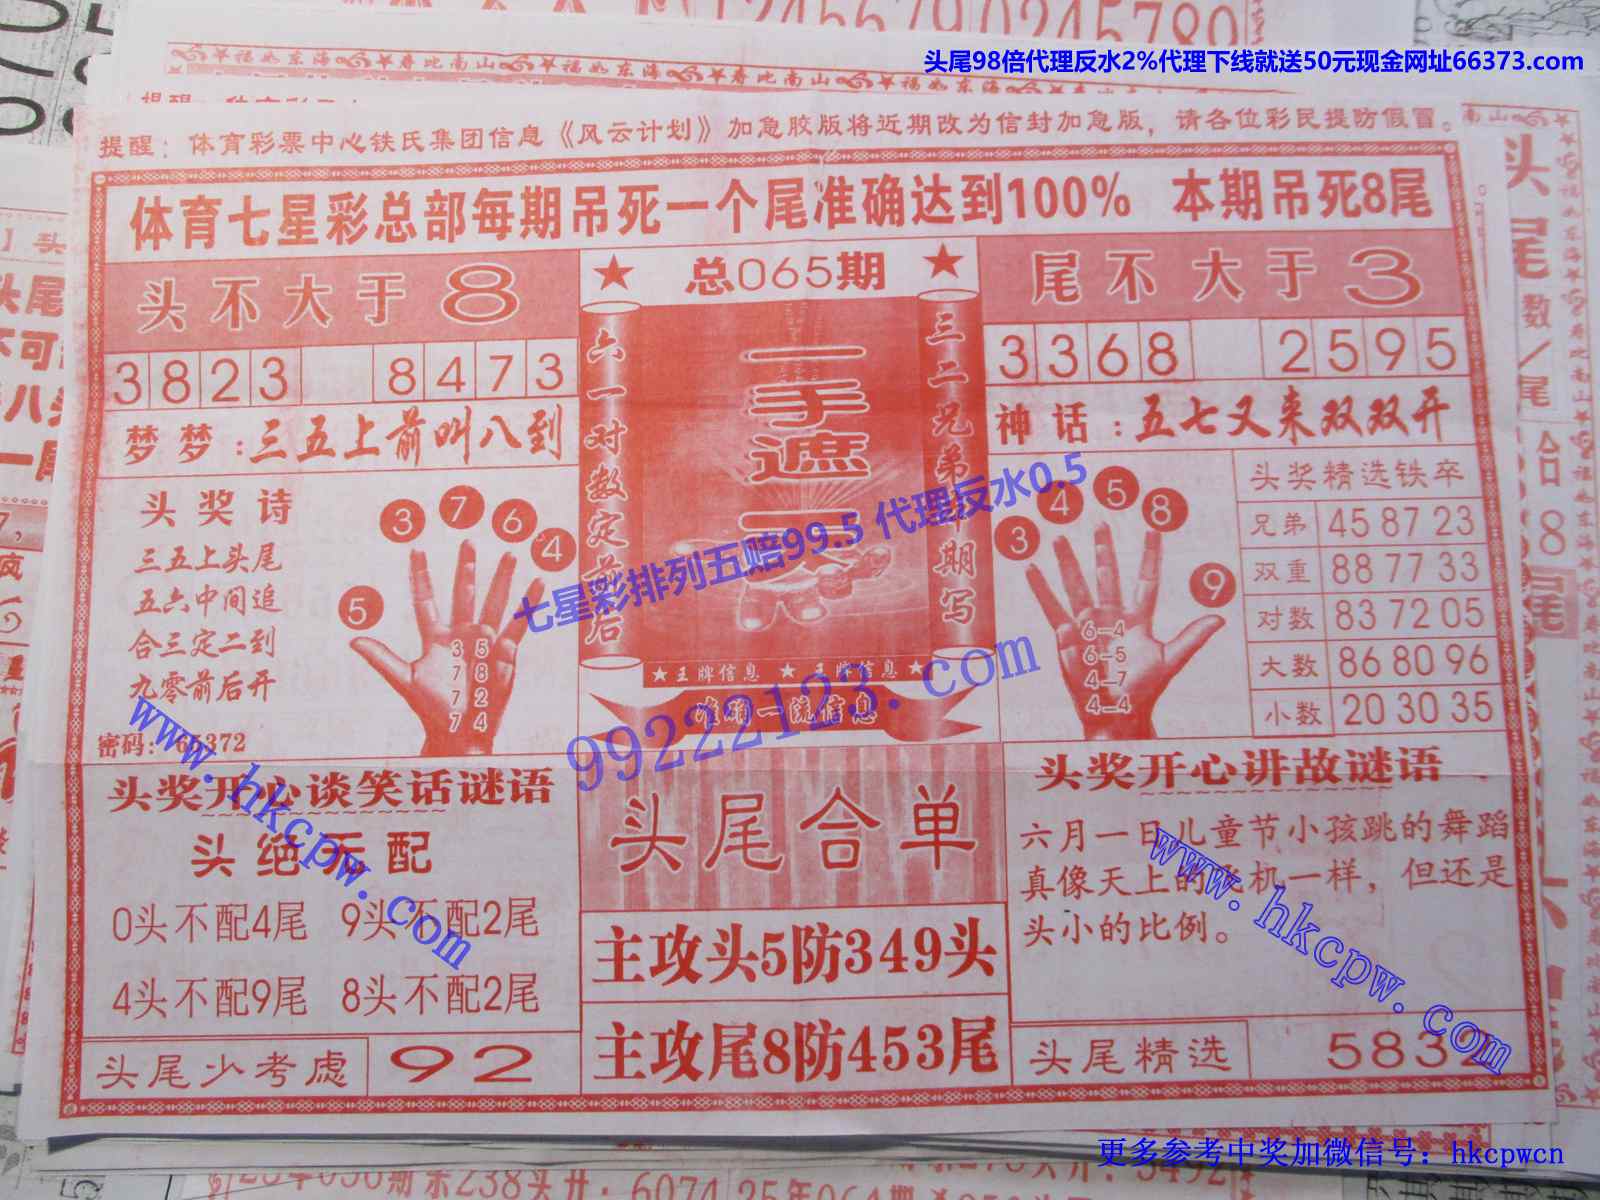 头尾98倍代理反水2%代理下线就送50元现金网址66373.com
提醒：体育彩票中心铁氏集团信息《风云计划》加急胶版将近期改为信封加急版，请各位彩民提防假冒。
体育七星彩总部每期吊死一个尾准确达到100% 本期吊死8尾
头不大于8
3823 8473
梦梦：三五上前叫八到
头奖诗
三五上头尾
五六中间追
合三定二到
九零前后开
密码：65372
5 3 7 6 4
3 5
7 8
7 2
7 4
总065期
六一对数定前后
一手遮天
三二兄弟期期写
★王牌信息 ★王牌信息★
准确一流信息
尾不大于3
3368 2595
神话：五七又来双双开
3 4 5 8 9
6—4
6—5
4—7
4—4
头奖精选铁卒
兄弟 45 87 23
双重 88 77 33
对数 83 72 05
大数 86 80 96
小数 20 30 35
七星彩排列五赔99.5 代理反水0.5
99222123.com
www.hkcpw.com
头奖开心谈笑话谜语
头绝不配
0头不配4尾 9头不配2尾
4头不配9尾 8头不配2尾
头尾少考虑 92
头尾合单
主攻头5防349头
主攻尾8防453尾
头奖开心讲故谜语
六月一日儿童节小孩跳的舞蹈
真像天上的飞机一样，但还是
头小的比例。
www.hkcpw.com
头尾精选 5832
更多参考中奖加微信号：hkcpwcn